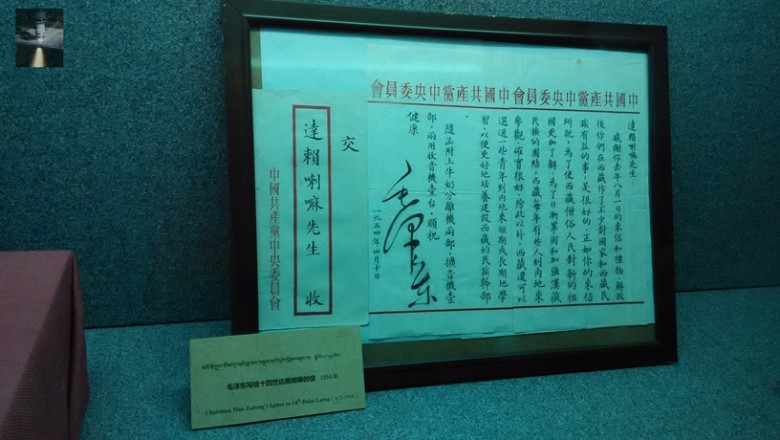 中國共產黨中央委員會中國共產黨中央委員會
達賴喇嘛先生:
感謝你去年八月一日的來信和禮物。解放
後你們在西藏作了不少對國家和西藏民
族有益的事,是很好的。正如你的來信
所說,為了使西藏僧俗人民對新的祖
國更加了解,為了日漸鞏固和加強漢藏
民族的團結,西藏每年有些人到內地來
參觀,確實很好。除此以外,西藏還可以
選送一些青年到內地來短期或長期地學
習,以便更好地培養建設西藏的民族幹部
隨函附上牛奶分離機兩部,擴音機壹
部,兩用收音機壹台。順祝
健康
毛澤東
一九五四年四月十日
交
達賴喇嘛先生 收
中國共產黨中央委員會
毛泽东写给十四世达赖喇嘛的信 1954
Chairman Mao Zedong's Letter to 14th Dalai Lama